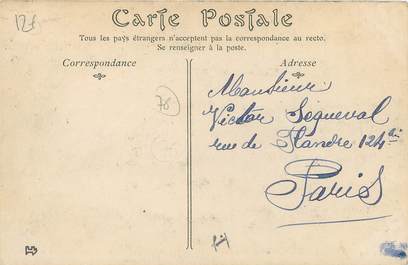 12f
Carte Postale
Tous les pays étrangers n'acceptent pas la correspondance au recto.
Se renseigner à la poste.
Correspondance
Adresse
78
Monsieur
Victor Sequeval
rue de Flandre 124 bis
Paris